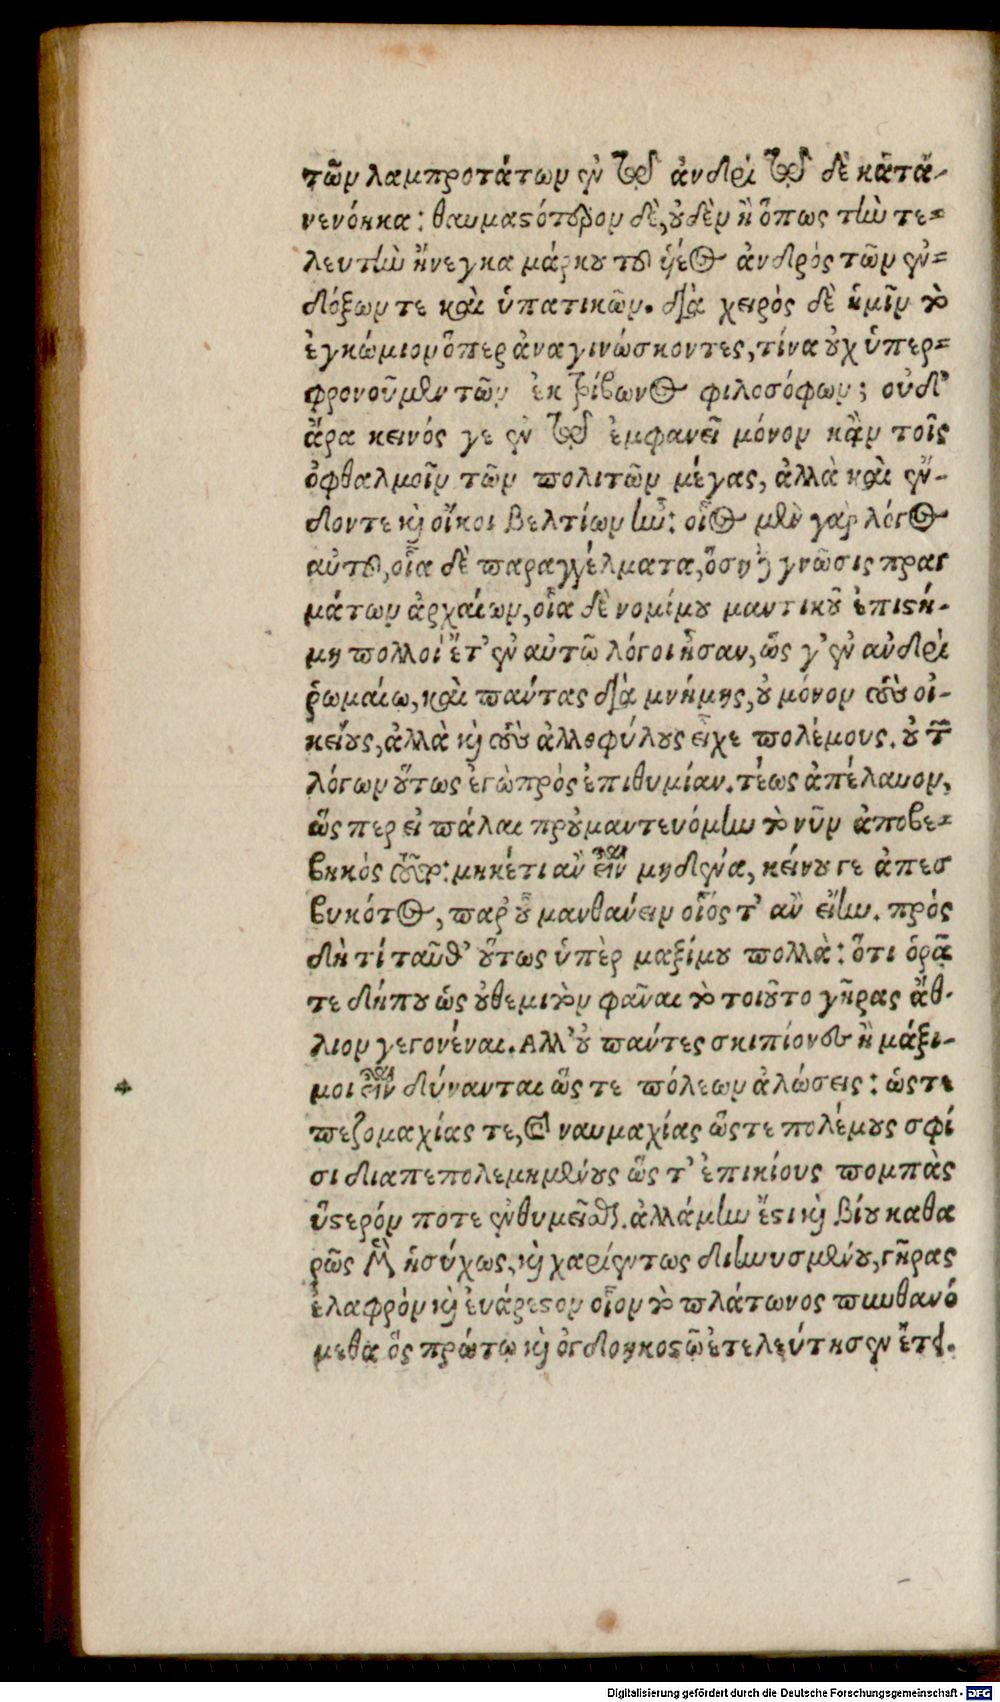 τῶν λαμπροτάτων ἐν τῷδε ἀνδρὶ τῷδε δὲ κᾀτᾴ-
νενόηκα: θαυμαστότερον δὲ, οὐδὲν ἢ ὅπως τὴν τε=
λευτὴν ἤνεγκα μάρκου τοῦ ὑέος ἀνδρὸς τῶν ἐν=
δόξων τε καὶ ὑπατικῶν. διὰ χειρὸς δὲ ἡμῖν τὸ
ἐγκώμιον ὅπερ ἀναγινώσκοντες, τίνα οὐχ ὑπερ=
φρονοῦμεν τῶν ἐκ τρίβωνος φιλοσόφων; οὐδ'
ἄρα κεινός γε ἐν τῷδε ἐμφανεῖ μόνον κᾂν τοῖς
ὀφθαλμοῖν τῶν πολιτῶν μέγας, ἀλλὰ καὶ ἔν-
δοντε καὶ οἴκοι βελτίων ἦν: οἷος μὲν γὰρ λόγος
αὐτοῦ, οἷα δὲ παραγγέλματα, ὅση ἡ γνῶσις πραγ
μάτων ἀρχαίων, οἷα δὲ νομίμου μαντικοῦ ἐπιστή-
μη πολλοὶ ἔτ' ἐν αὐτῷ λόγοι ἦσαν, ὥς γ' ἐν ἀνδρὶ
ῥωμαίῳ, καὶ πάντας διὰ μνήμης, οὐ μόνον τοὺς οἰ-
κείους, ἀλλὰ καὶ τοὺς ἀλλοφύλους εἶχε πολέμους. οὗ τῶν
λόγων οὕτως ἐγὼ πρὸς ἐπιθυμίαν. τέως ἀπέλαυον,
ὥς περ εἰ πάλαι προὐμαντευόμην τὸ νῦν ἀποβε=
βηκὸς τοῦτο: μηκέτι ἂν εἶναι μηδένα, κείνου γε ἀπεσ
βυκότος, παρ' οὗ μανθάνειν οἷός τ' ἂν εἴην. πρὸς
δὴ τί ταῦθ' οὕτως ὑπὲρ μαξίμου πολλὰ: ὅτι ὁρᾶ
τε δήπου ὡς οὐ θεμιτὸν φᾶναι τὸ τοιοῦτο γῆρας ἄθ-
λιον γεγονέναι. Αλλ' οὐ πάντες σκιπίονες ἢ μάξι-
μοι εἶναι δύνανται ὥς τε πόλεων ἁλώσεις: ὥς τε
πεζομαχίας τε, καὶ ναυμαχίας ὥς τε πολέμους σφί
σι διαπεπολεμημένους ὥς τ' ἐπικίους πομπὰς
ὕστερόν ποτε ἐνθυμεῖσθαι. ἀλλάμὴν ἔστι καὶ βίου καθα
ρῶς καὶ ἡσύχως, καὶ χαριέντως διηνυσμένου, γῆρας
ἐλαφρὸν καὶ ἐυάρεστον οἷον τὸ πλάτωνος πυνθανό
μεθα ὅς πρώτῳ καὶ ὀγδοηκοστῷ ἐτελεύτησεν ἔτει.
Digitalisierung gefördert durch die Deutsche Forschungsgemeinschaft - DFG